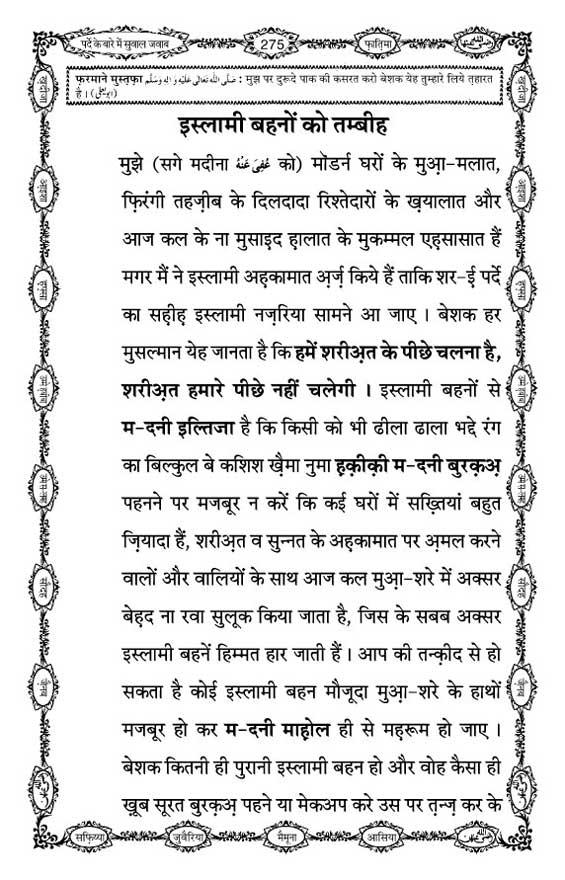 पर्दे के बारे में सुवाल जवाब
275
फ़ातिमा
फ़रमाने मुस्तफ़ा صَلَّى اللّٰهُ تَعَالٰى عَلَيْهِ وَاٰلِهٖ وَسَلَّم : मुझ पर दुरूदे पाक की कसरत करो बेशक येह तुम्हारे लिये त़हारत
है । (ابو یعلی)
इस्लामी बहनों को तम्बीह
मुझे (सगे मदीना عُفِیَ عَنْهُ को) मॉडर्न घरों के मुआ़-मलात,
फ़िरंगी तहज़ीब के दिलदादा रिश्तेदारों के ख़यालात और
आज कल के ना मुसाइद ह़ालात के मुकम्मल एह़सासात हैं
मगर मैं ने इस्लामी अह़कामात अ़र्ज़ किये हैं ताकि शर-ई़ पर्दे
का सह़ीह़ इस्लामी नज़रिया सामने आ जाए । बेशक हर
मुसल्मान येह जानता है कि हमें शरीअ़त के पीछे चलना है,
शरीअ़त हमारे पीछे नहीं चलेगी । इस्लामी बहनों से
म-दनी इल्तिजा है कि किसी को भी ढीला ढाला भद्दे रंग
का बिल्कुल बे कशिश ख़ैमा नुमा ह़क़ीक़ी म-दनी बुरक़अ़
पहनने पर मजबूर न करें कि कई घरों में सख़्तियां बहुत
ज़ियादा हैं, शरीअ़त व सुन्नत के अह़कामात पर अ़मल करने
वालों और वालियों के साथ आज कल मुआ़-शरे में अक्सर
बेह़द ना रवा सुलूक किया जाता है, जिस के सबब अक्सर
इस्लामी बहनें हिम्मत हार जाती हैं । आप की तन्क़ीद से हो
सकता है कोई इस्लामी बहन मौजूदा मुआ़-शरे के हाथों
मजबूर हो कर म-दनी माह़ोल ही से मह़रूम हो जाए ।
बेशक कितनी ही पुरानी इस्लामी बहन हो और वोह कैसा ही
ख़ूब सूरत बुरक़अ़ पहने या मेकअप करे उस पर त़न्ज़ कर के
ख़दीजा
आ़इशा
ह़फ़्सा
सौदह
ज़ैनब
सफ़िय्या
जुवैरिया
मैमूना
आसिया